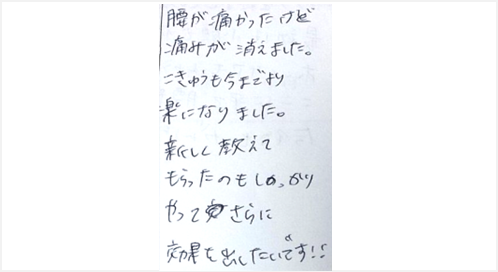 腰が痛かったけど
痛みが消えました。
こきゅうも今までより
楽になりました。
新しく教えて
もらったのもしっかり
やってさらに
効果を出したいです!!